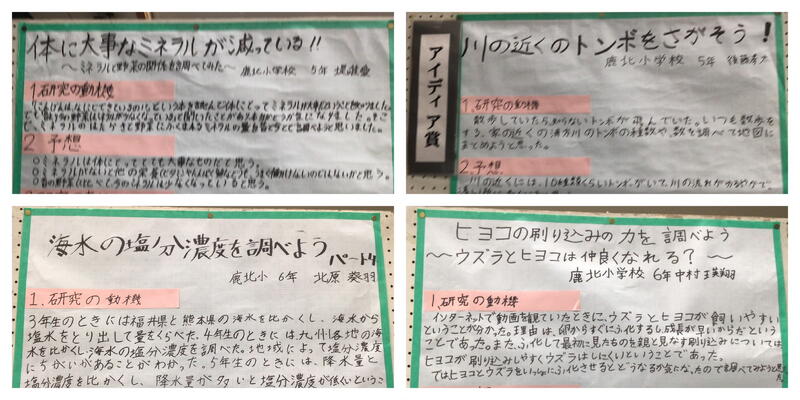 体に大事なミネラルが減っている!!
～ミネラルと野菜の関係を調べてみた～ 鹿北小学校 5年
1.研究の動機
2 予想
○ミネラルは体にとってとても大事なものだと思う。
アイディア賞
川の近くのトンボをさがそう!
鹿北小学校 5年
1.研究の動機
散歩していたら、知らないトンボが飛んでいた。いつも散歩を
する、家の近くの浦方川のトンボの種類や、数を調べて地図に
まとめようと思った。
2.予想
川の近くには、10種類くらいトンボがいて、川の流れがゆるやかで
海水の塩分濃度を調べよう パート4
鹿北小 6年 北原 葵羽
1.研究の動機
3年生のときには福井県と熊本県の海水を比かくし、海水から
塩水をとり出して量をくらべた。4年生のときには九州各地の海
水を比かくし、海水の塩分濃度を調べた。地域によって塩分濃度
にちがいがあることがわかった。5年生のときには、降水量と
塩分濃度を比かくし、降水量が多いと塩分濃度が低いというこ
ヒヨコの刷り込みの力を調べよう
～ウズラとヒヨコは仲良くなれる?～
鹿北小学校 6年 中村
1.研究の動機
インターネットで動画を観ていたときに、ウズラとヒヨコが飼いやすい
ということが分かった。理由は、卵からすぐにふ化するし成長が早いからだという
ことであった。また、ふ化して最初に見たものを親と見なす刷り込みについては
ヒヨコが刷り込みしやすくウズラはしにくいということであった。
ではヒヨコとウズラをいっしょにふ化させるとどうなるか気になったので調べてみようと思った